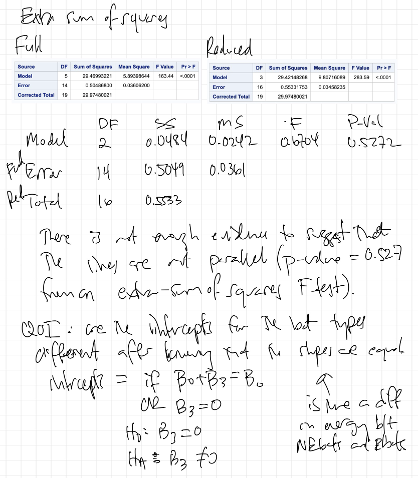 Extra sum of squares
Full Reduced
Source DF Sum of Squares Mean Square F Value Pr > F
Model 5 29.46993221 5.89398644 163.44 <.0001
Error 14 0.50486800 0.03606200
Corrected Total 19 29.97480021
Source DF Sum of Squares Mean Square F Value Pr > F
Model 3 29.42148268 9.80716089 283.59 <.0001
Error 16 0.55331753 0.03458235
Corrected Total 19 29.97480021
DF SS MS F P-Val
Model 2 0.0484 0.0242 0.6704 0.5272
Full Error 14 0.5049 0.0361
Red Total 16 0.5533
There is not enough evidence to suggest that
the lines are not parallel (p-value = 0.527
from an extra-sum of squares F test).
QOI: are the intercepts for the bat types
different after knowing that the slopes are equal
intercepts = if B0+B3=B0
OR B3=0
H0: B3=0
HA: B3≠0
is there a diff
in energy b/t
NEbats and Ebats